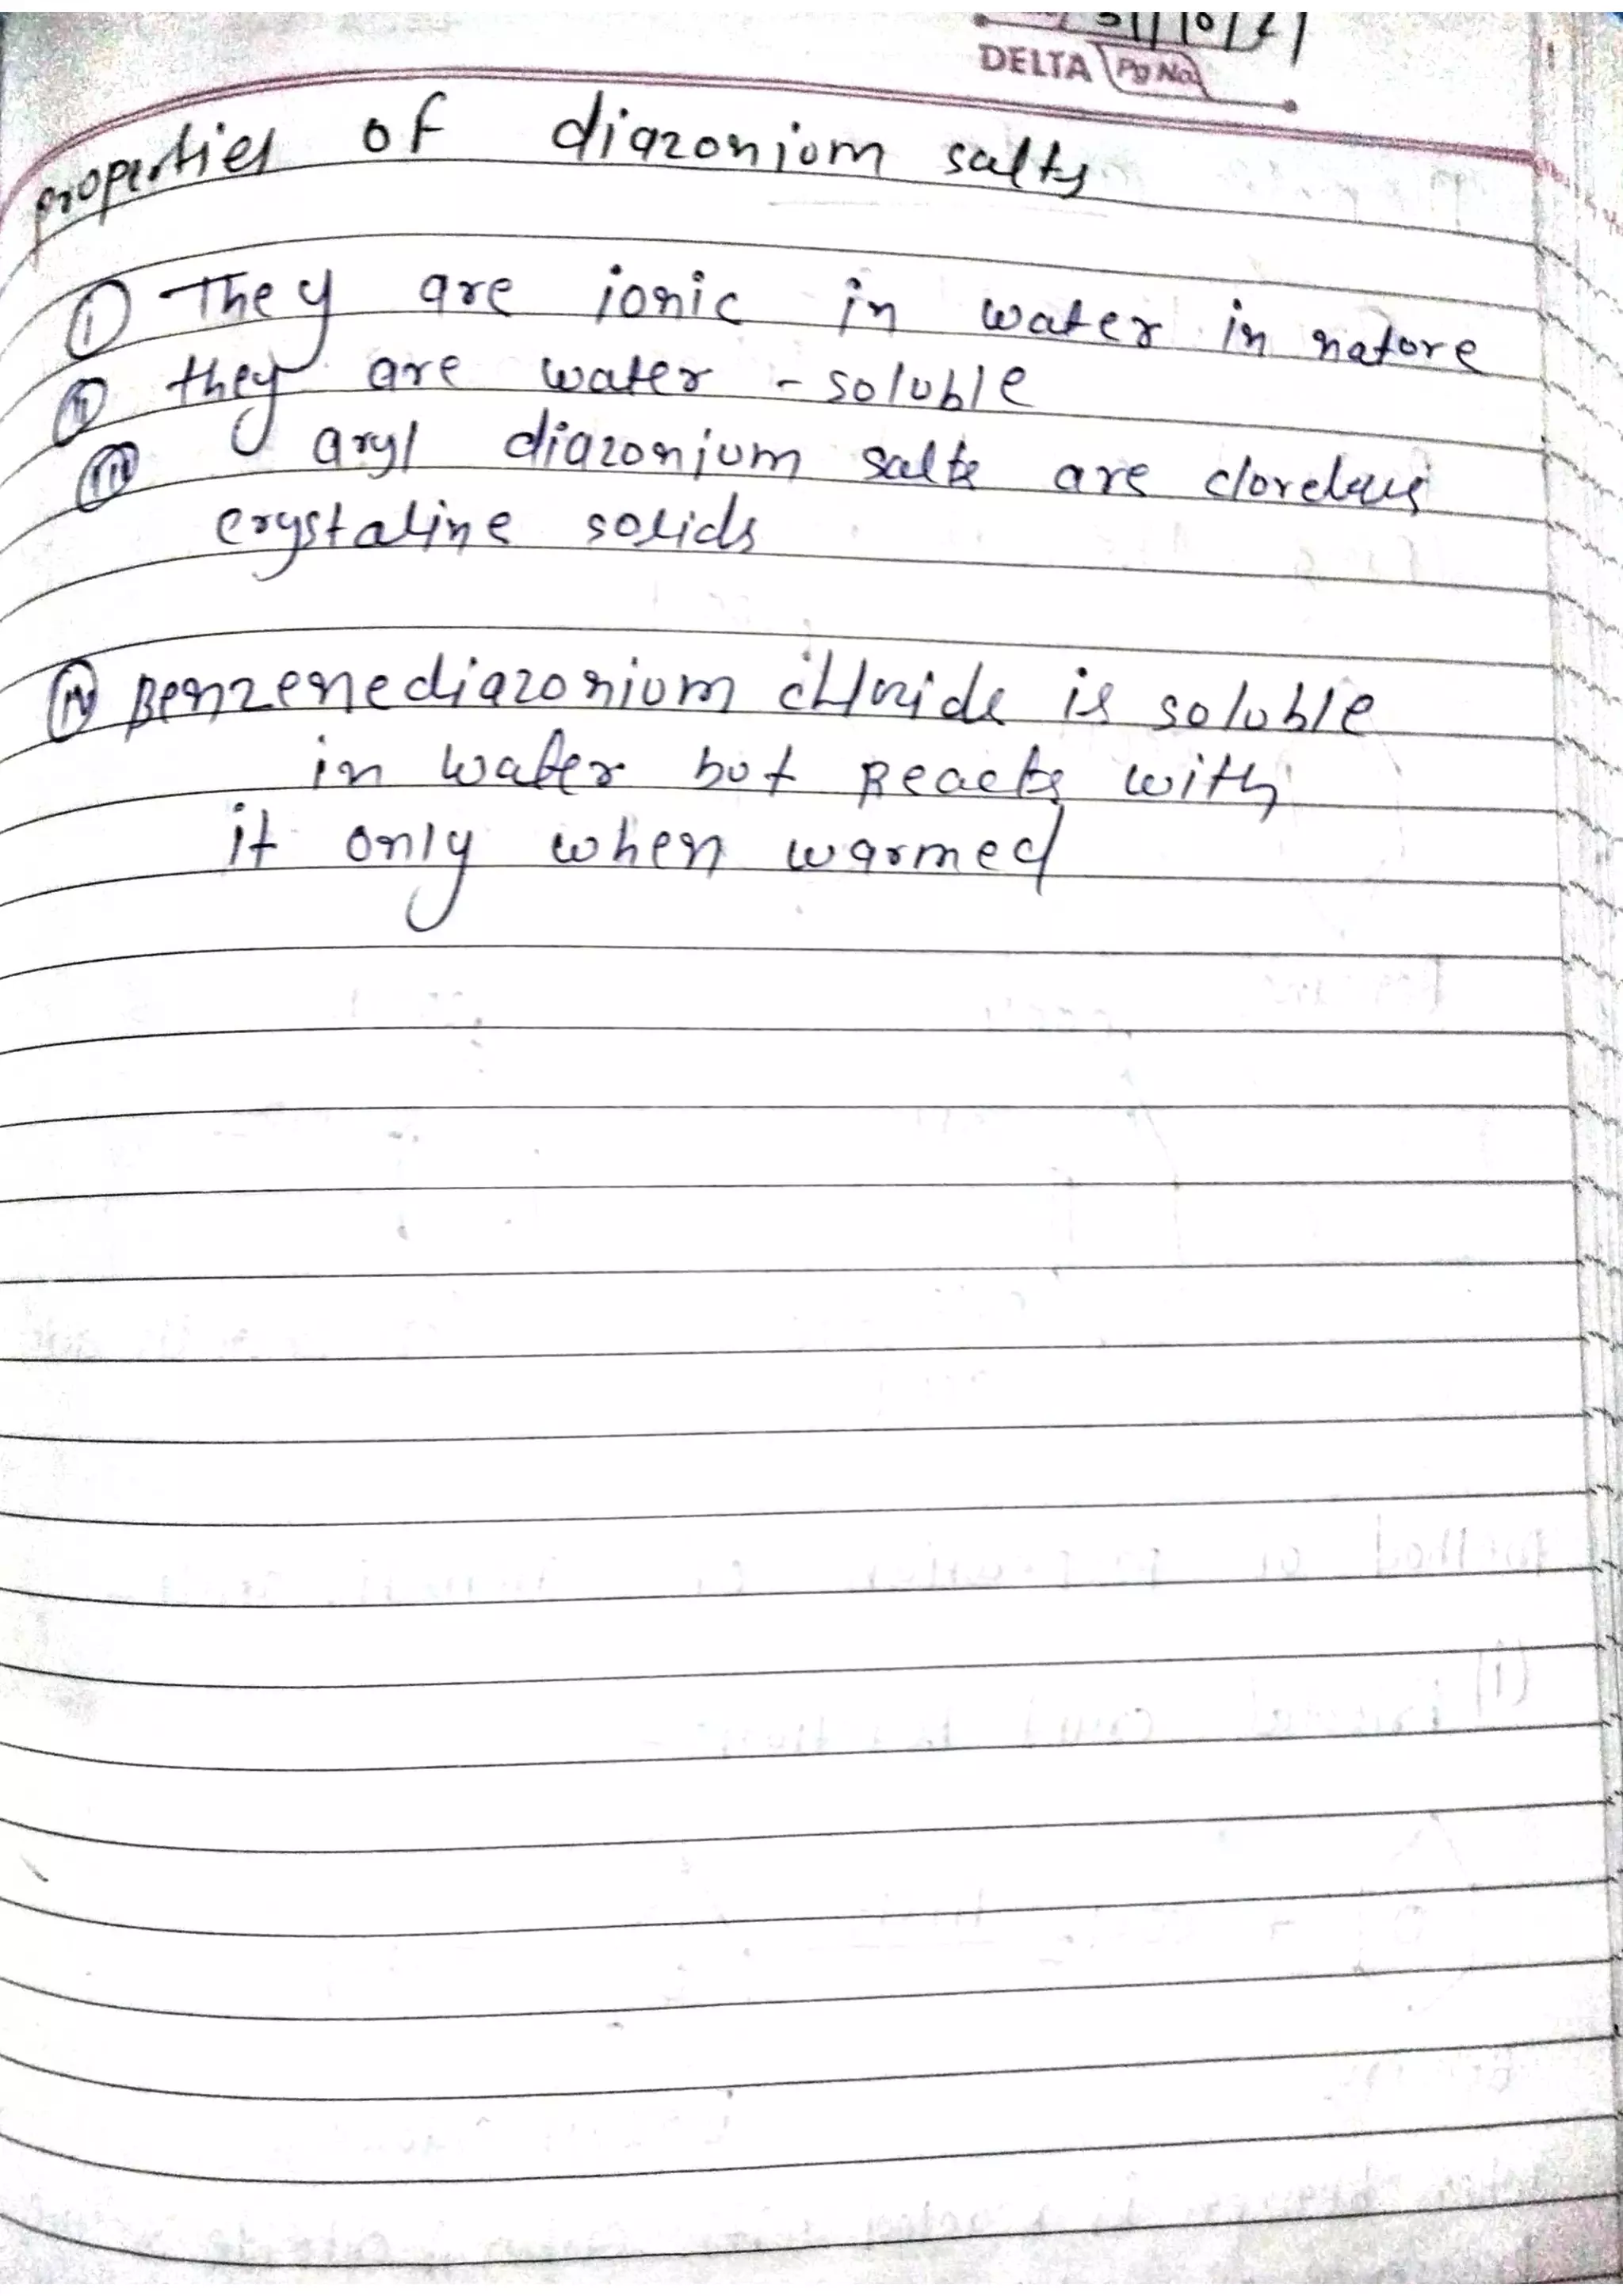 DELTA Pg No.
properties of diazonium salts
(i) They are ionic in water in nature
(ii) they are water - soluble
(iii) aryl diazonium salts are
crystaline solids
(iv) Benzenediazonium chloride is soluble
in water but Reacts with
it only when warmed